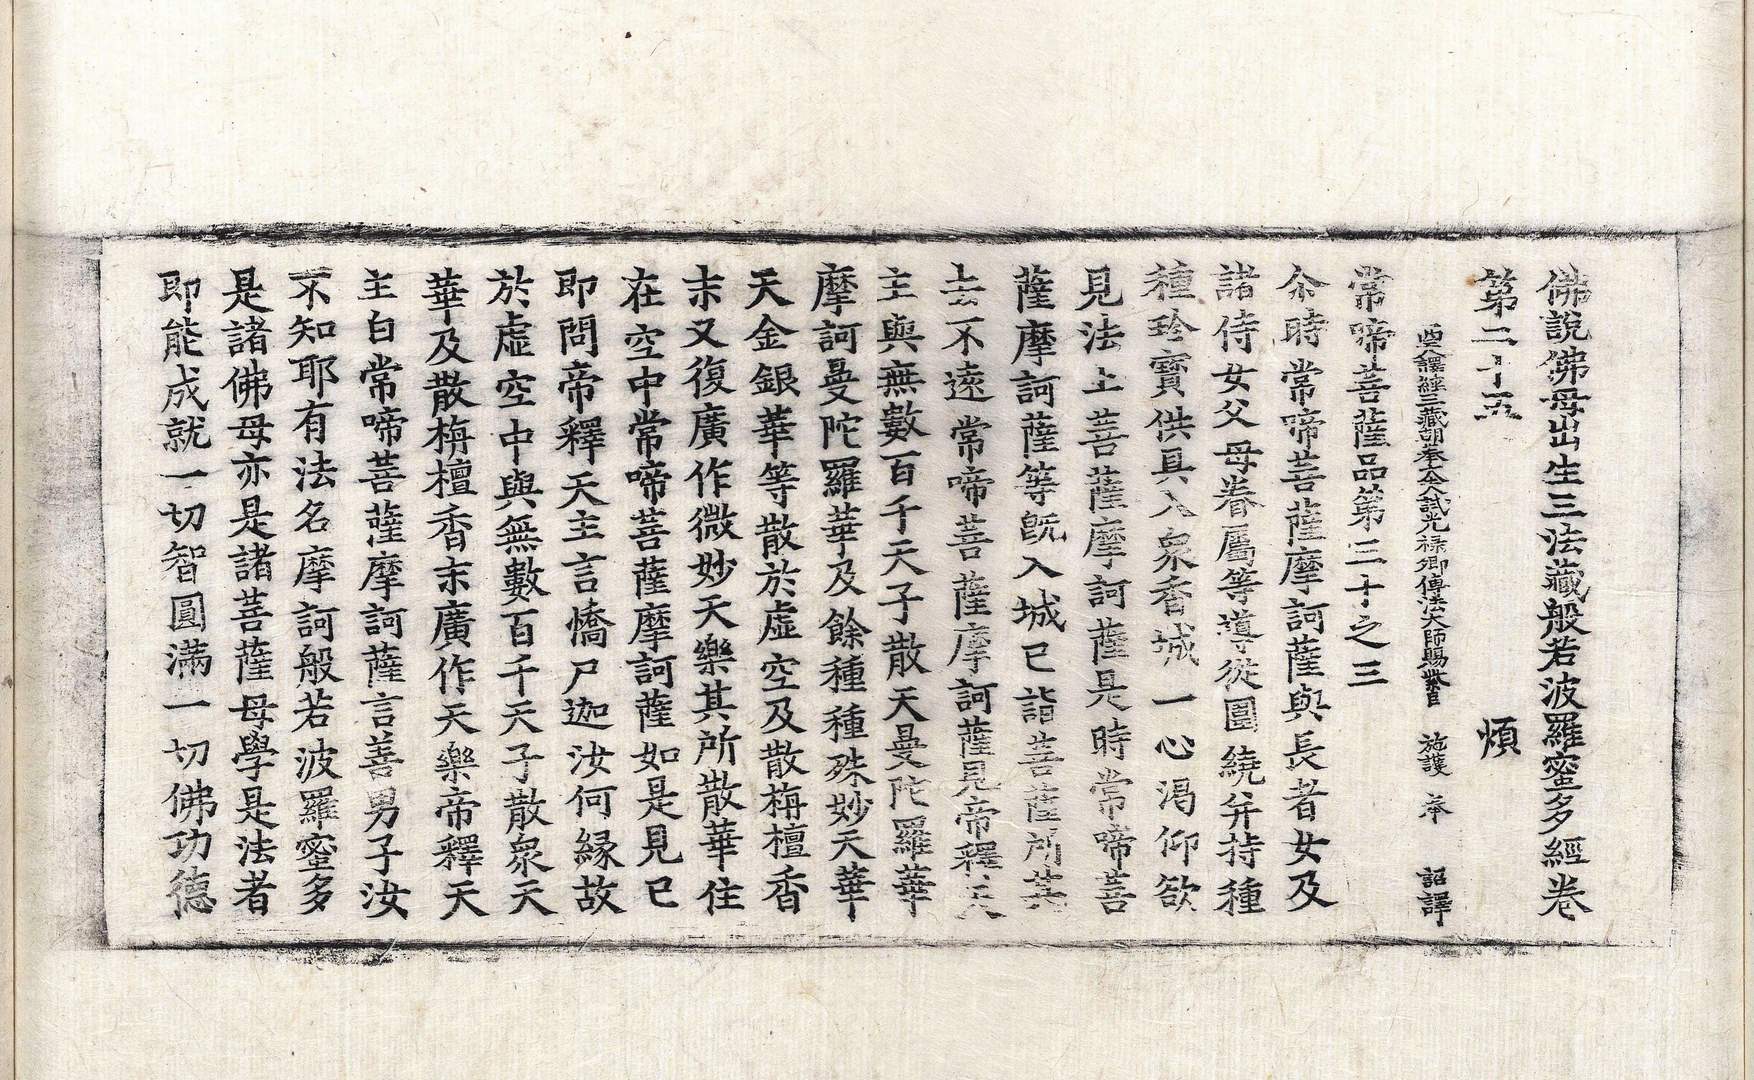 佛說佛母出生三法藏般若波羅蜜多經卷
第二十五 煩
西天譯經三藏朝奉大夫試光祿卿傳法大師賜紫臣 施護 奉 詔譯
常啼菩薩品第三十之三
尒時常啼菩薩摩訶薩與長者女及
諸侍女父母眷屬等導從圍繞并持種
種珍寶供具入衆香城一心渴仰欲
見法上菩薩摩訶薩是時常啼菩
薩摩訶薩等旣入城已詣菩薩所其
去不遠常啼菩薩摩訶薩見帝釋天
主與無數百千天子散天曼陀羅華
摩訶曼陀羅華及餘種種殊妙天華
天金銀華等散於虛空及散栴檀香
末又復廣作微妙天樂其所散華住
在空中常啼菩薩摩訶薩如是見已
即問帝釋天主言憍尸迦汝何緣故
於虛空中與無數百千天子散衆天
華及散栴檀香末廣作天樂帝釋天
主白常啼菩薩摩訶薩言善男子汝
不知耶有法名摩訶般若波羅蜜多
是諸佛母亦是諸菩薩母學是法者
即能成就一切智圓滿一切佛功德